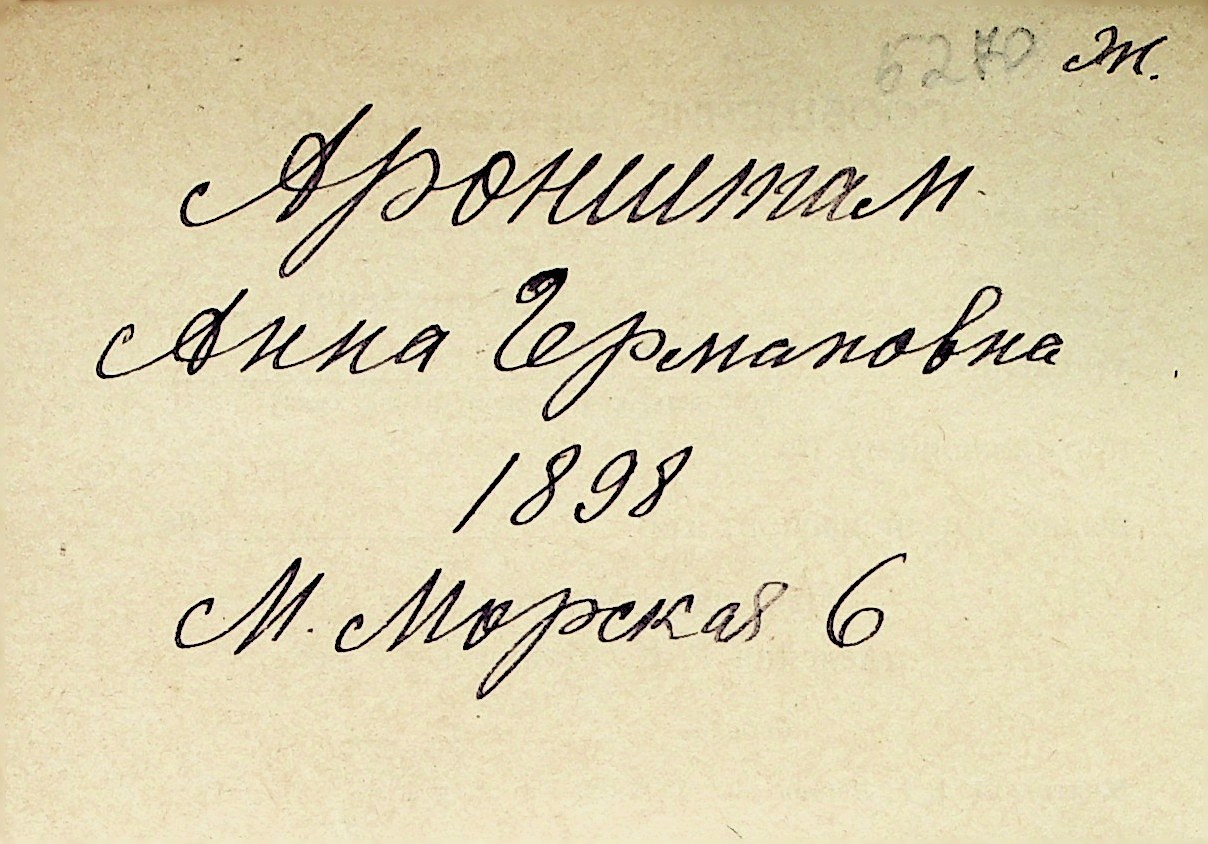 5270 ж.
Аронштам
Анна Германовна
1898
М. Морская 6